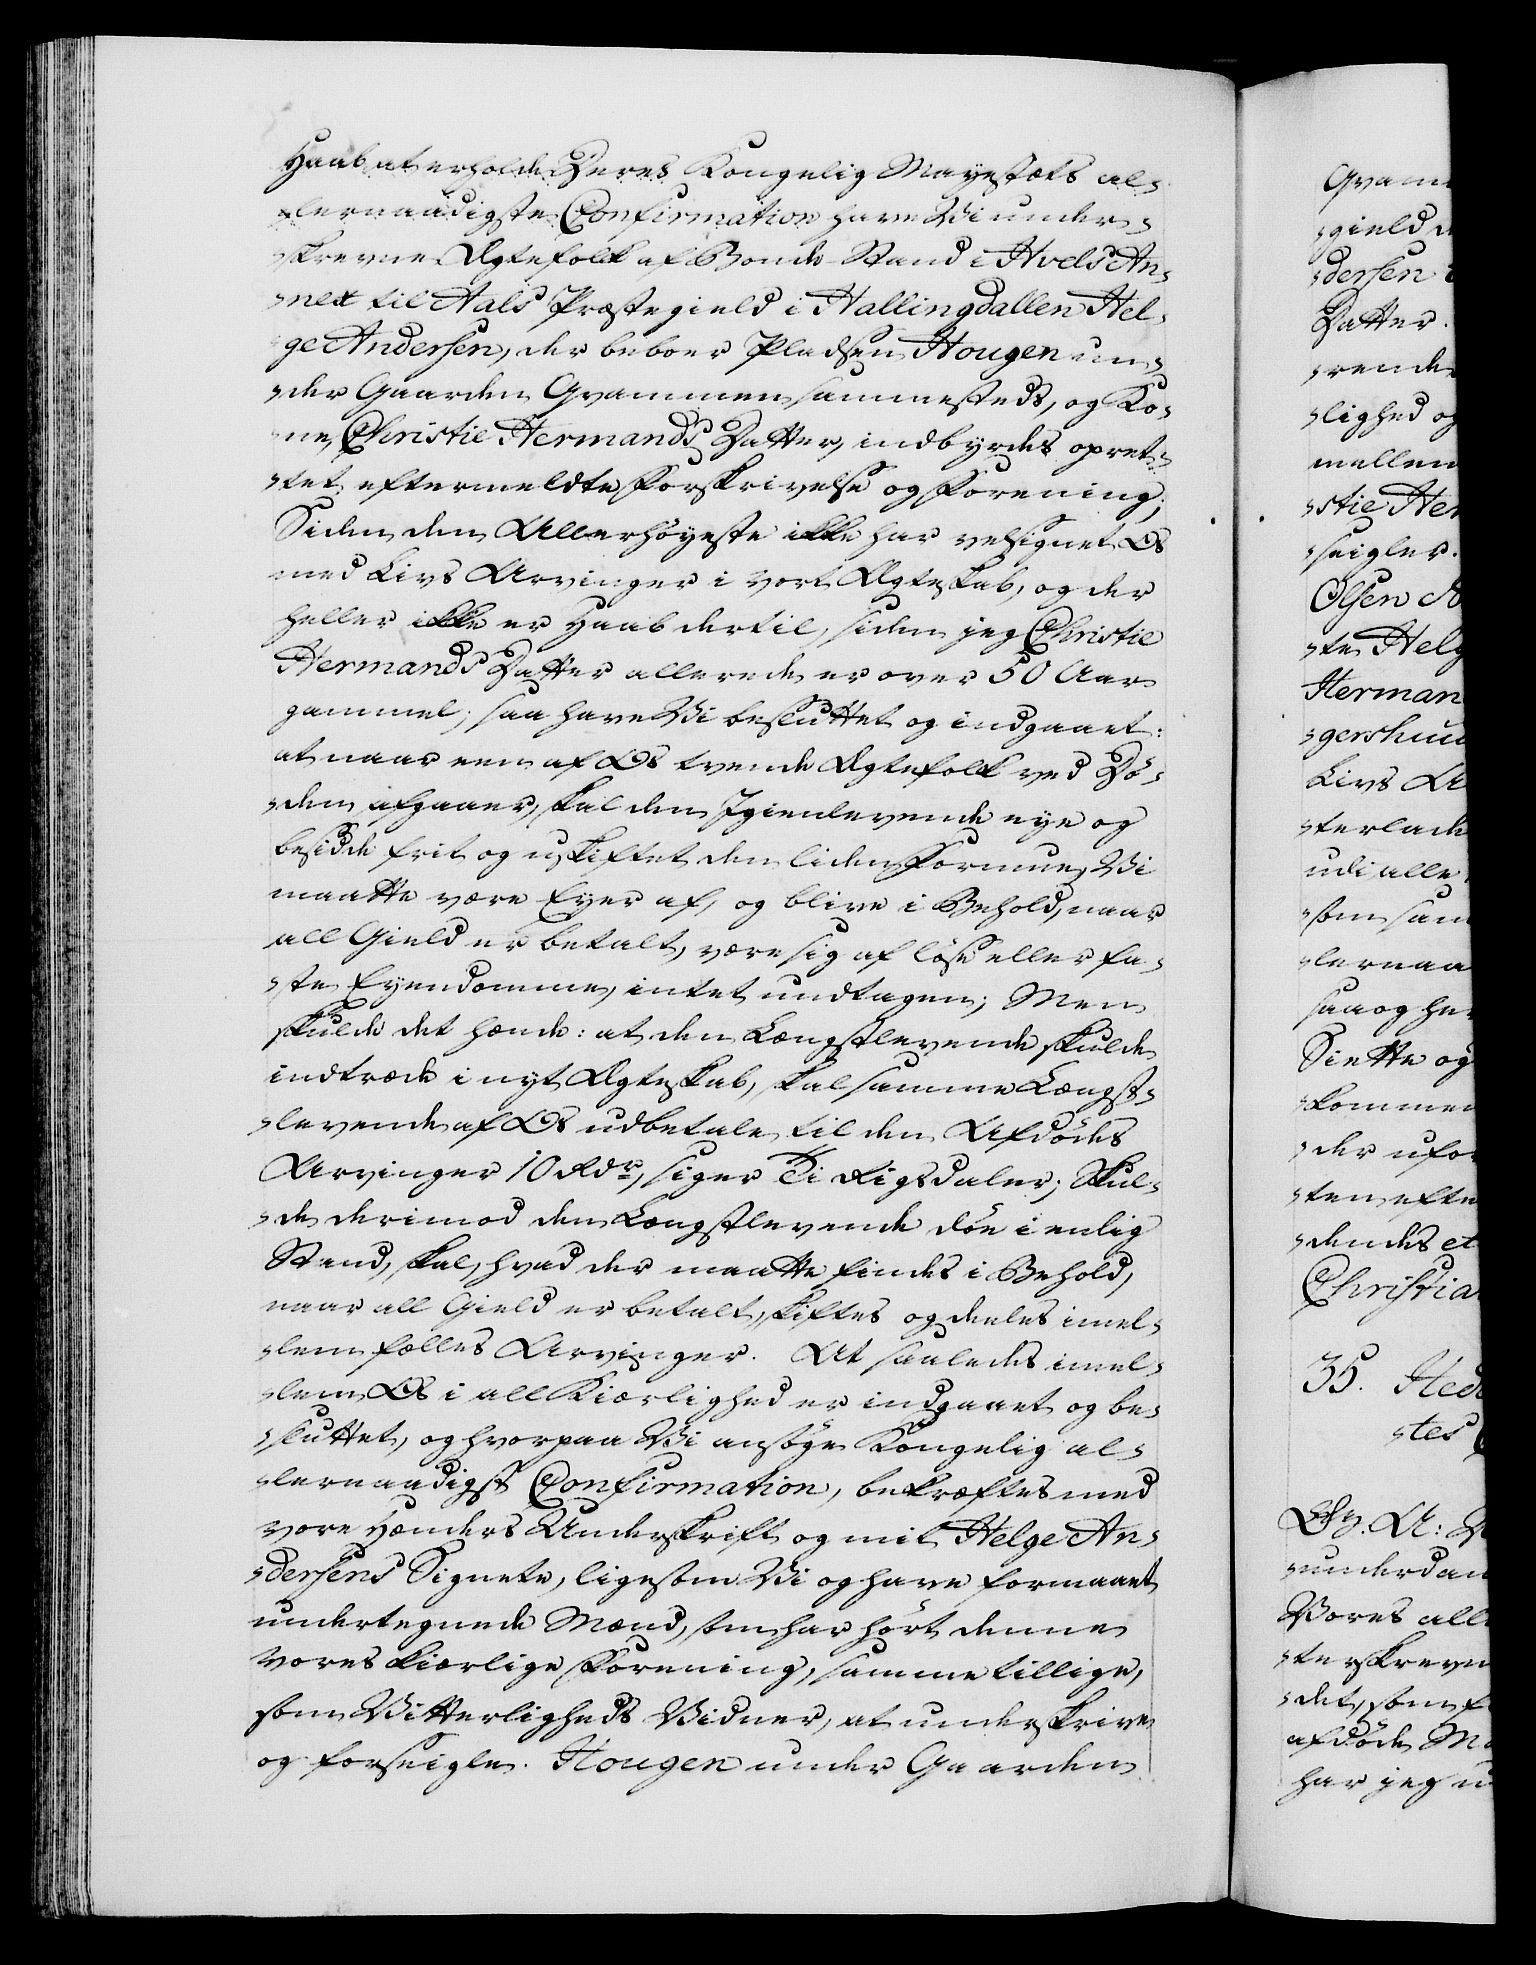 Haab at erholde Deres Kongelig Mayestæts al-
lernaadigste Confirmation have Vi under-
skrevne Ægtefolk af Bonde-Stand i Hvels An-
nex til Aals Præstegield i Hallingdallen Hel-
ge Andersen, der beboer Pladsen Hougen un-
der Gaarden Gvammen sammesteds, og Ko-
ne, Christie Hermands Datter, indbyrdes opret-
tet eftermeldte Forskrivelse og Forening;
Siden den Allerhöyeste ikke har velsignet Os
med Livs Arvinger i vort Ægteskab, og der
heller ikke er Haab dertil, siden jeg Christie
Hermands Datter allerede er over 50 Aar
gammel; saa have Vi besluttet og indgaaet:
at naar een af Os tvende Ægtefolk ved Dö-
den afgaaer, skal den Igienlevende eye og
besidde frit og uskiftet den liden Formue, Vi
maatte være Eyer af, og blive i Behold, naar
all Gield er betalt, være sig af löse eller fa-
ste Eyendomme, intet undtagen; Men
skulde det hænde: at den Længstlevende skulde
indtræde i nyt Ægteskab, skal samme Længst-
levende af Os udbetale til den Afdödes
Arvinger 10 Rdr, siger Ti Rigsdaler; Skul-
de derimod den Længstlevende döe i enlig
Stand, skal, hvad der maatte findes i Behold,
naar all Gield er betalt, skiftes og deeles imel-
lem fælles Arvinger. At saaledes imel-
lem Os i all Kiærlighed er indgaaet og be-
sluttet, og hvorpaa Vi ansöge Kongelig al-
lernaadigst Confirmation, bekræftes med
vore Hænders Underskrift og mit Helge An-
dersens Signete, ligesom Vi og have formaaet
undertegnede Mænd, som har hört denne
vores kiærlige Forening, samme tillige,
som Vitterligheds Vidner, at underskrive
og forseigle. Hougen under Gaarden
gield
dersen
Datter.
rende
lighed og
mellem
stie Her
seigler.
Olsen
te Helg
Herman
gershuu
Livs A
terlade
udi alle
som sam
lernaa
saa og he
Siette og
kommer
der ufo
ten efte
dendes et
Christia
35. Hed
tes
Gr. A:
underdan
Vores all
terskreven
det, som f
afdöde Ma
har jeg u